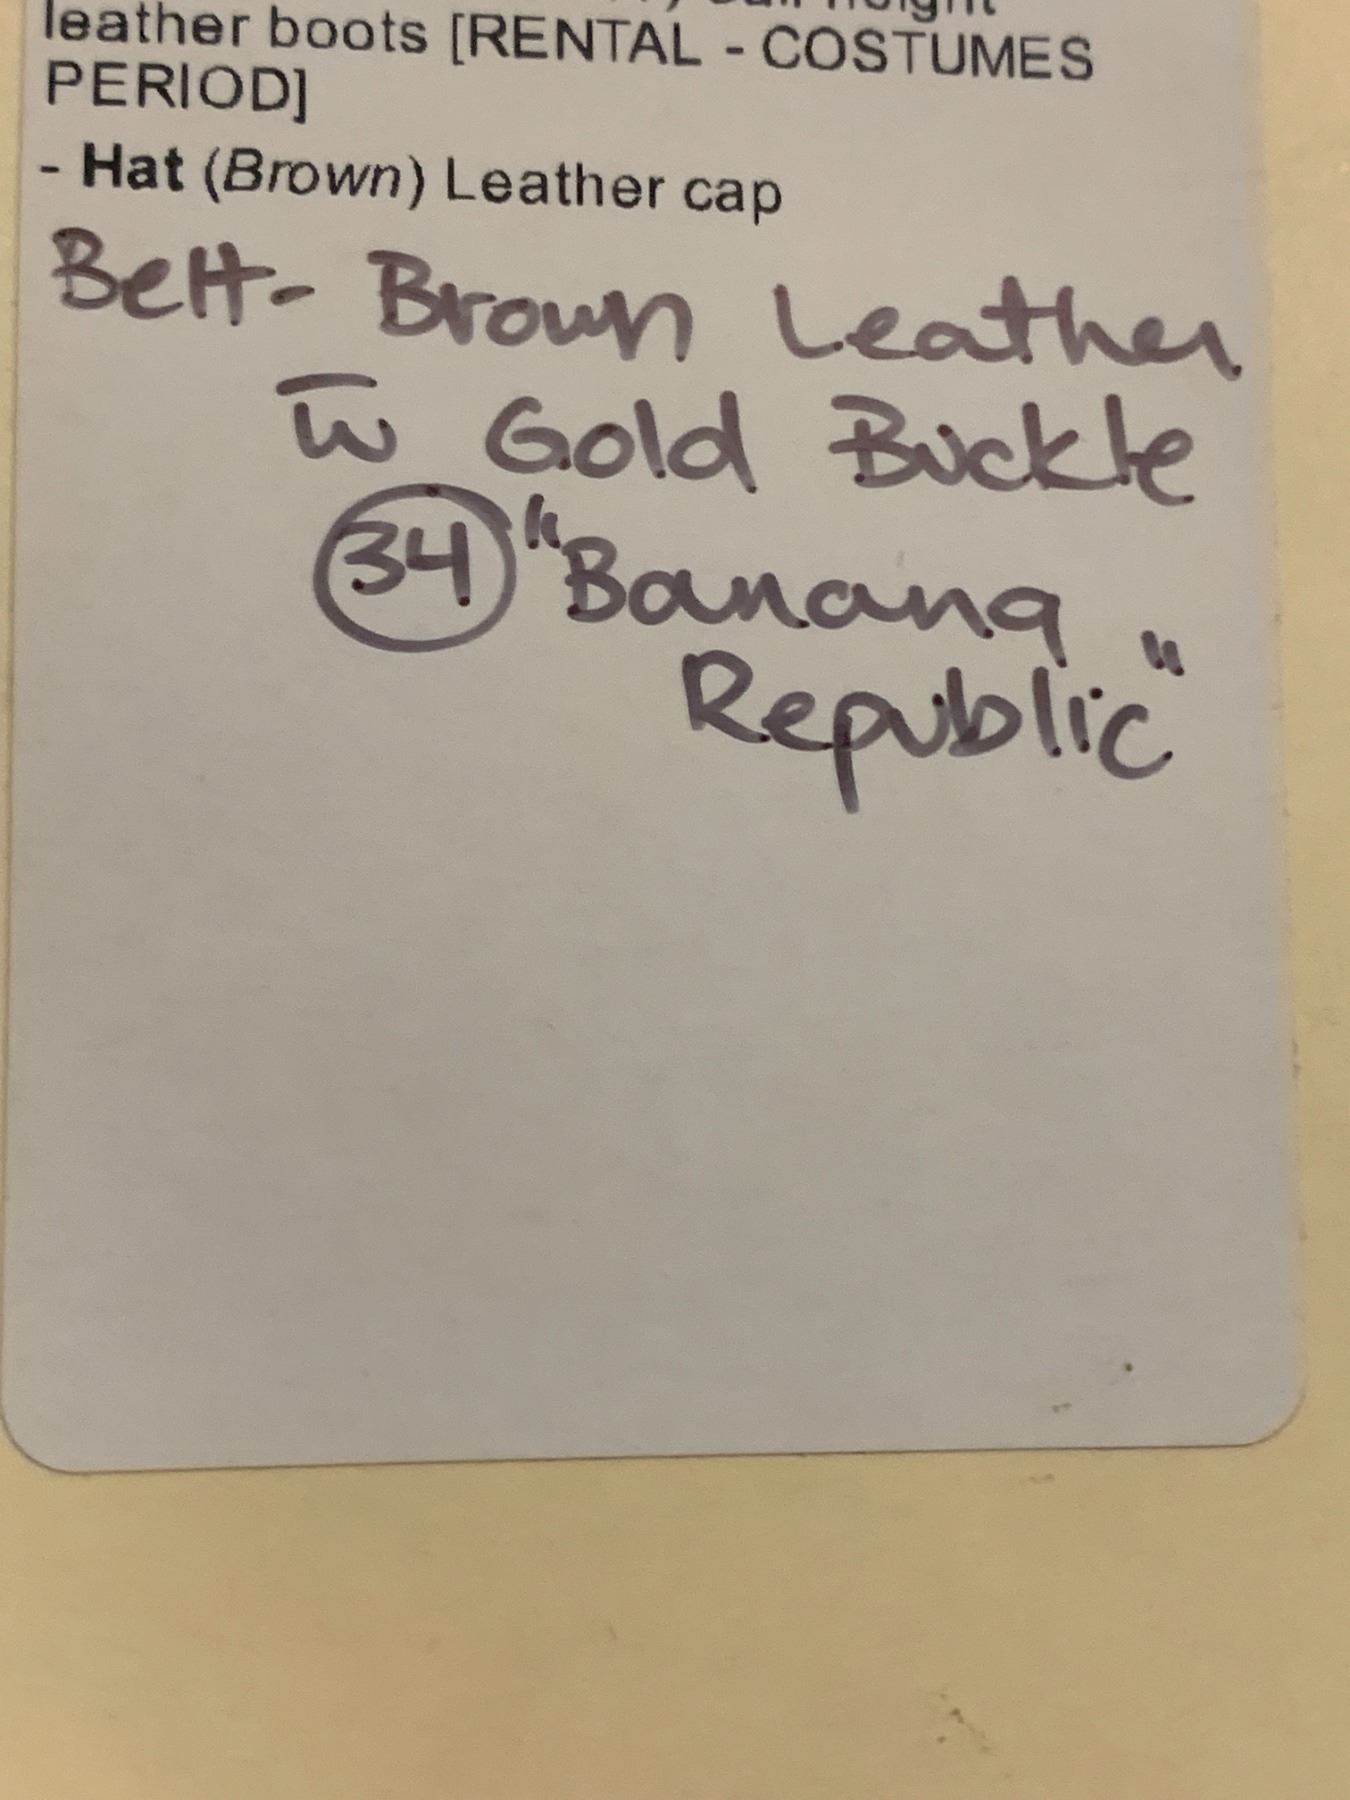 leather boots [RENTAL - COSTUMES
PERIOD]
- Hat (Brown) Leather cap
Belt- Brown Leather
w̅ Gold Buckle
34 "Banana
Republic"